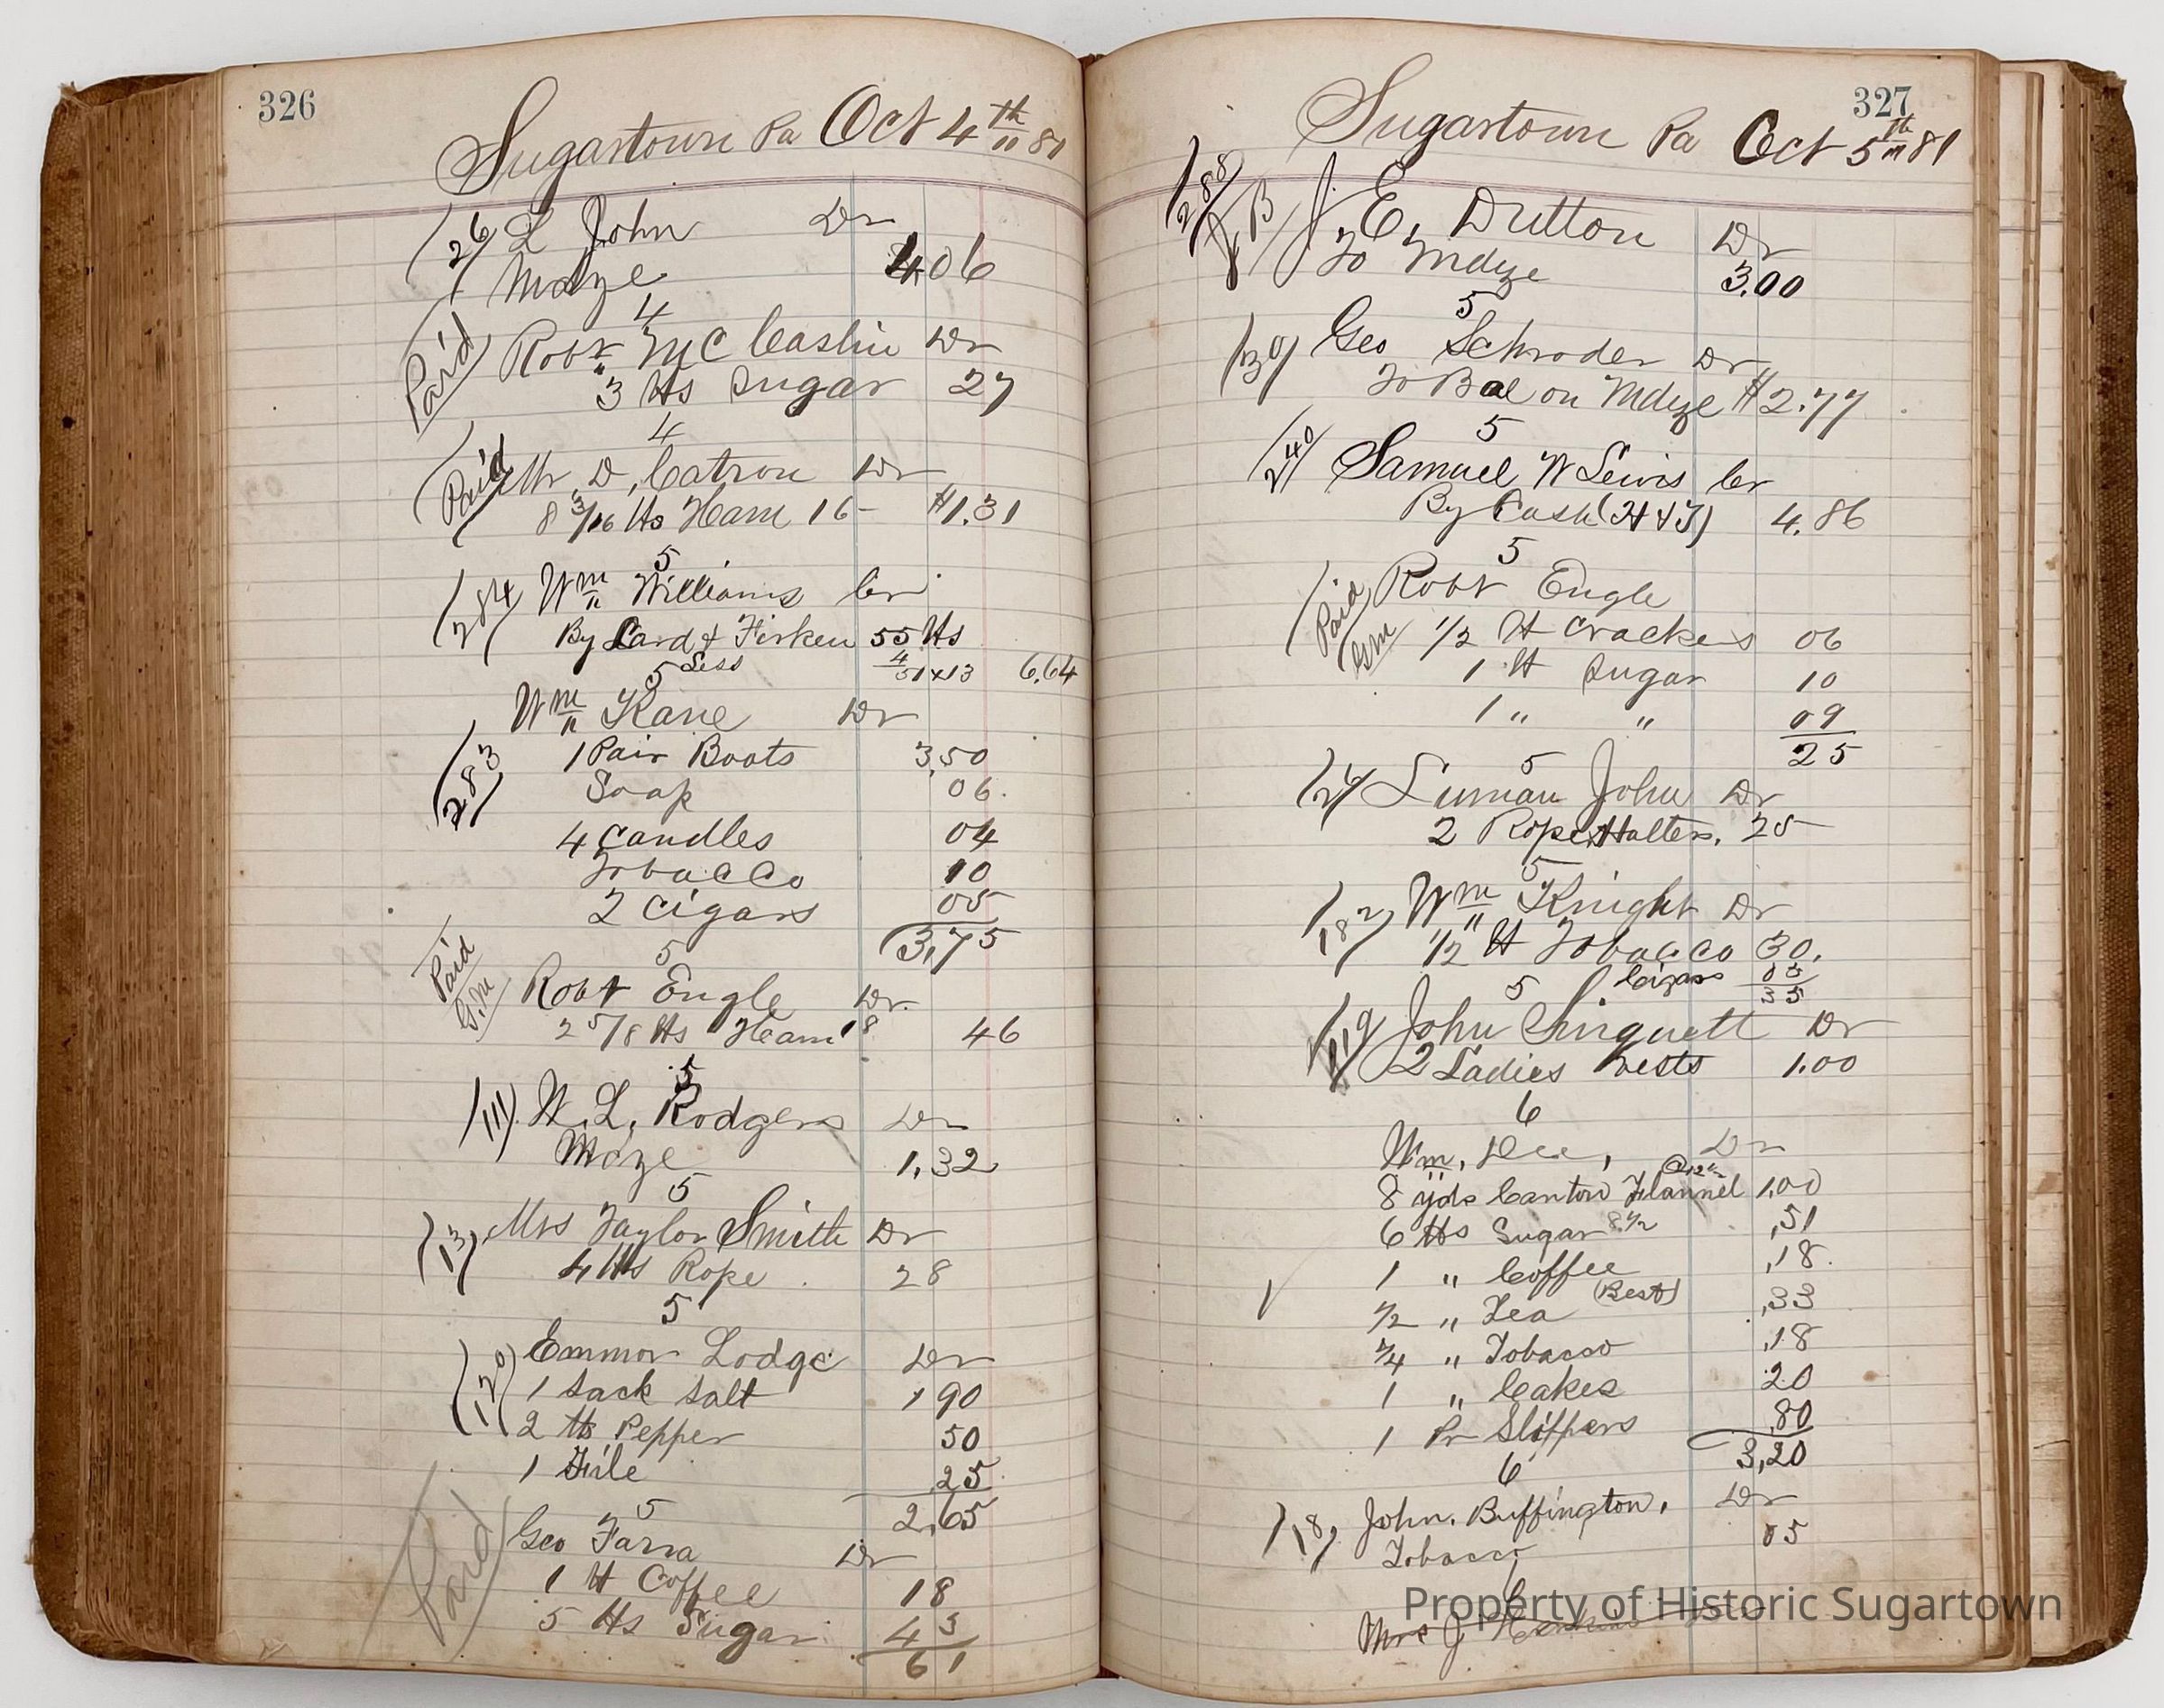 326
Sugartown Pa Oct 4th 81
(26) L John Dr
Mdze 4.06
4
Paid Robt Mc Caslin Dr
3 lbs Sugar 27
4
Paid Mr D, Catron Dr
8 3/16 lbs Ham 16 - $1.31
5
(284) Wm Williams Cr
By Lard & Firken 55 lbs
Less 4
51x13 6.64
5
Wm Kane Dr
(283) 1 Pair Boots 3,50
Soap 06
4 Candles 04
Tobacco 10
2 Cigars 05
3,75
5
Paid G.M Robt Engle Dr
2 5/8 lbs Ham 18 46
5
(111) W. L, Rodgers Dr
Mdze 1,32
5
(13) Mrs Taylor Smith Dr
4 lbs Rope 28
5
(120) Emmor Lodge Dr
1 Sack Salt 1 90
2 lb Pepper 50
1 File 25
2,65
5
Paid Geo Farra Dr
1 lb Coffee 18
5 lbs Sugar 43
61
327
Sugartown Pa Oct 5th 81
(288) B J. E, Dutton Dr
To Mdze 3.00
5
(30) Geo Schroder Dr
To Bal on Mdze $2.77
5
(240) Samuel W Lewis Cr
By Cash (H & J) 4.86
5
Paid GM Robt Engle
1/2 lb Crackers 06
1 lb Sugar 10
1 " " 09
25
5
(26) Luman John Dr
2 Rope Halters. 25
5
(182) Wm Knight Dr
1/2 lb Tobacco 30.
Cigars 05
35
5
(119) John Singuett Dr
2 Ladies Vests 1.00
6
Wm, Dee, Dr
8 yds Canton Flannel @12½ 1,00
6 lbs Sugar 8½ ,51
1 " Coffee ,18
1/2 " Tea (Best) ,33
1/4 " Tobacco ,18
1 " Cakes 20
1 Pr Slippers 80
3,20
6
(18) John, Buffington, Dr
Tobacco 05
6
Mrs J
Property of Historic Sugartown